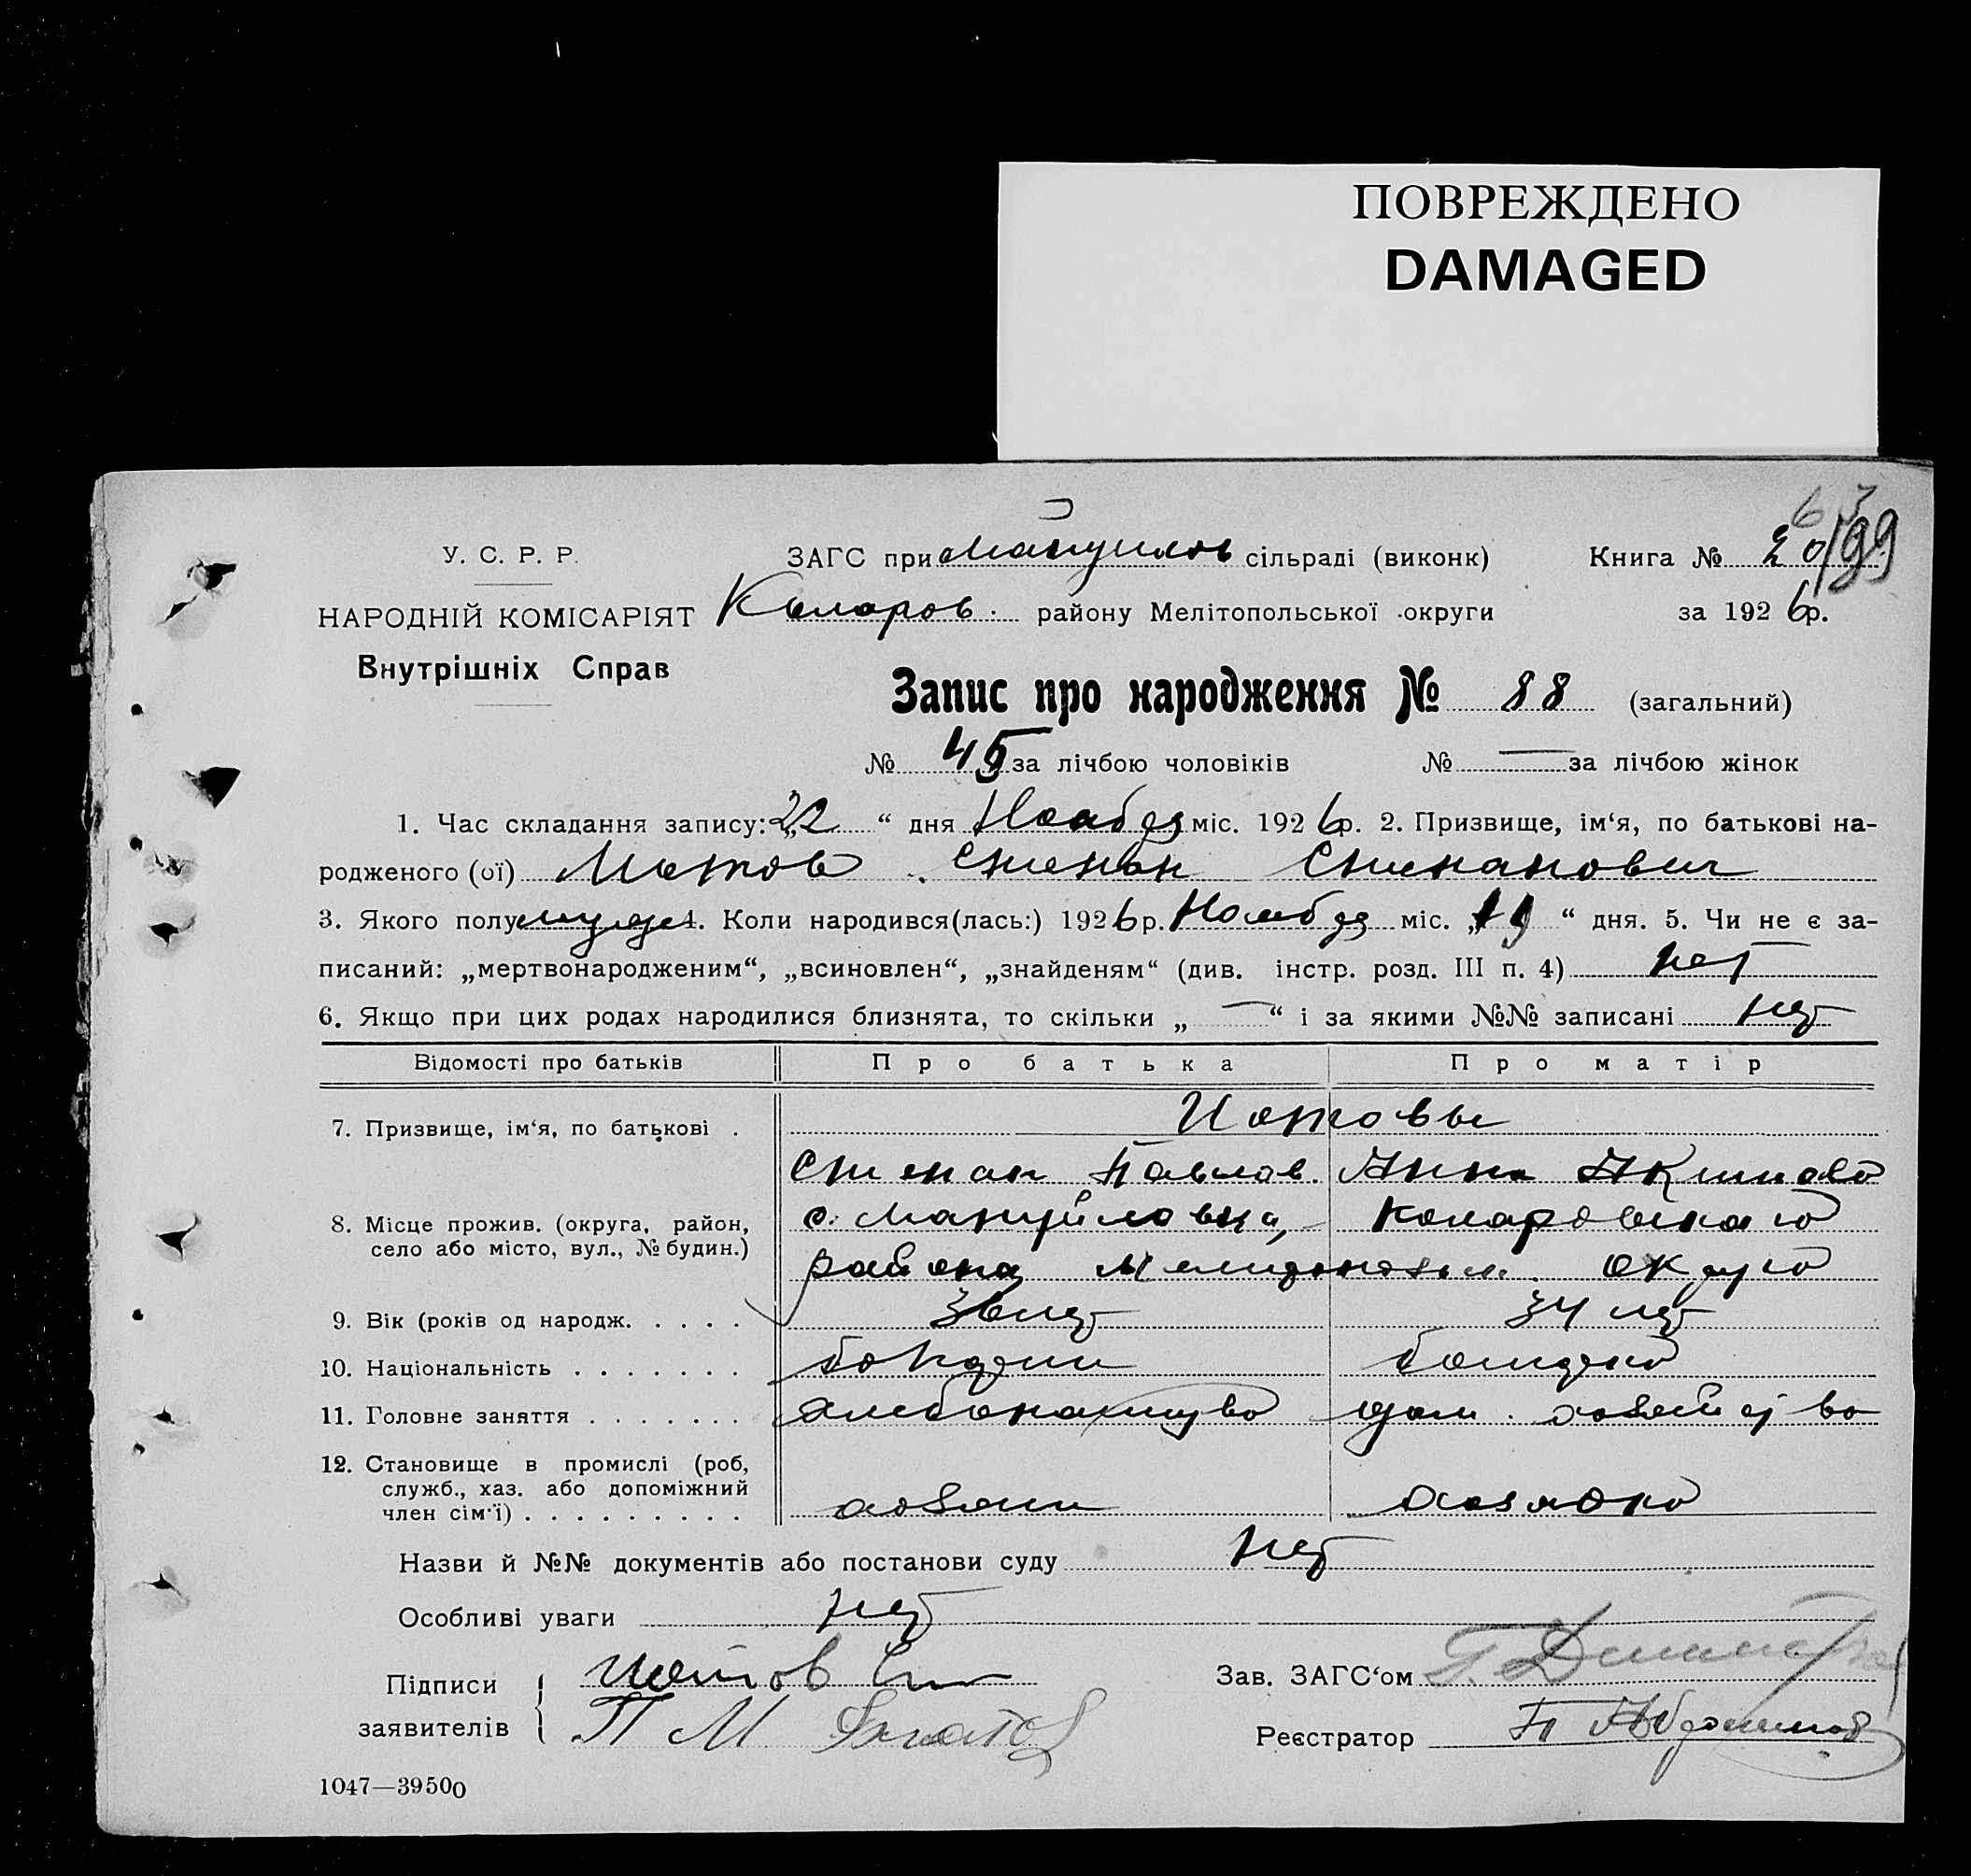 ПОВРЕЖДЕНО
DAMAGED
63
У. С. Р. Р. ЗАГС при Мануилов сільраді (виконк) Книга № 20/99
НАРОДНІЙ КОМІСАРІЯТ Коларов. району Мелітопольської округи за 1926 р.
Внутрішніх Справ
Запис про народження № 88 (загальний)
№ 45 за лічбою чоловіків № — за лічбою жінок
1. Час складання запису: „22 “ дня Ноября міс. 1926 р. 2. Призвище, ім‘я, по батькові на-
родженого (ої) Степан Степанович
3. Якого полу муж 4. Коли народився(лась:) 1926 р. Ноября міс. „19 “ дня. 5. Чи не є за-
писаний: „мертвонародженим“, „всиновлен“, „знайденям“ (див. інстр. розд. III п. 4) нет
6. Якщо при цих родах народилися близнята, то скільки „ — “ і за якими №№ записані нет
Відомості про батьків Про батька Про матір
7. Призвище, ім‘я, по батькові .
Степан Павлов. Анна
8. Місце прожив. (округа, район, с. Мануйловка, Коларовскаго
село або місто, вул., № будин.) района Мелитопольск. округа
9. Вік (років од народж. . . . . 36 лет 34 лет
10. Національність . . . . . . . болгарин болгарка
11. Головне заняття . . . . . . . хлебопашество дом. хозяйство
12. Становище в промислі (роб,
служб., хаз. або допоміжний
член сім‘ї) . . . . . . . . . хозяин хозяйка
Назви й №№ документів або постанови суду нет
Особливі уваги нет
Підписи Зав. ЗАГС‘ом Г.
заявителів П М Реєстратор П
1047—39500